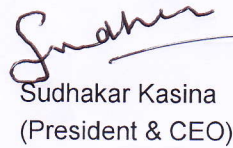 Sudhakar
Sudhakar Kasina
(President & CEO)